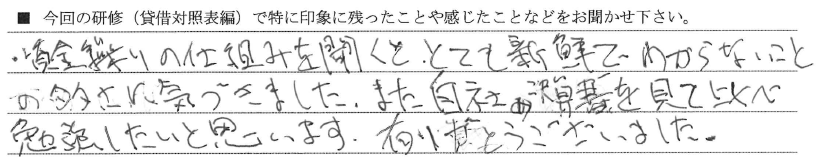 ■ 今回の研修（貸借対照表編）で特に印象に残ったことや感じたことなどをお聞かせ下さい。
・資金繰りの仕組みを聞くと、とても新鮮で、わからないこと
の多さに気づきました。また自社の決算書を見て比べ
勉強したいと思います。有り難とうございました。